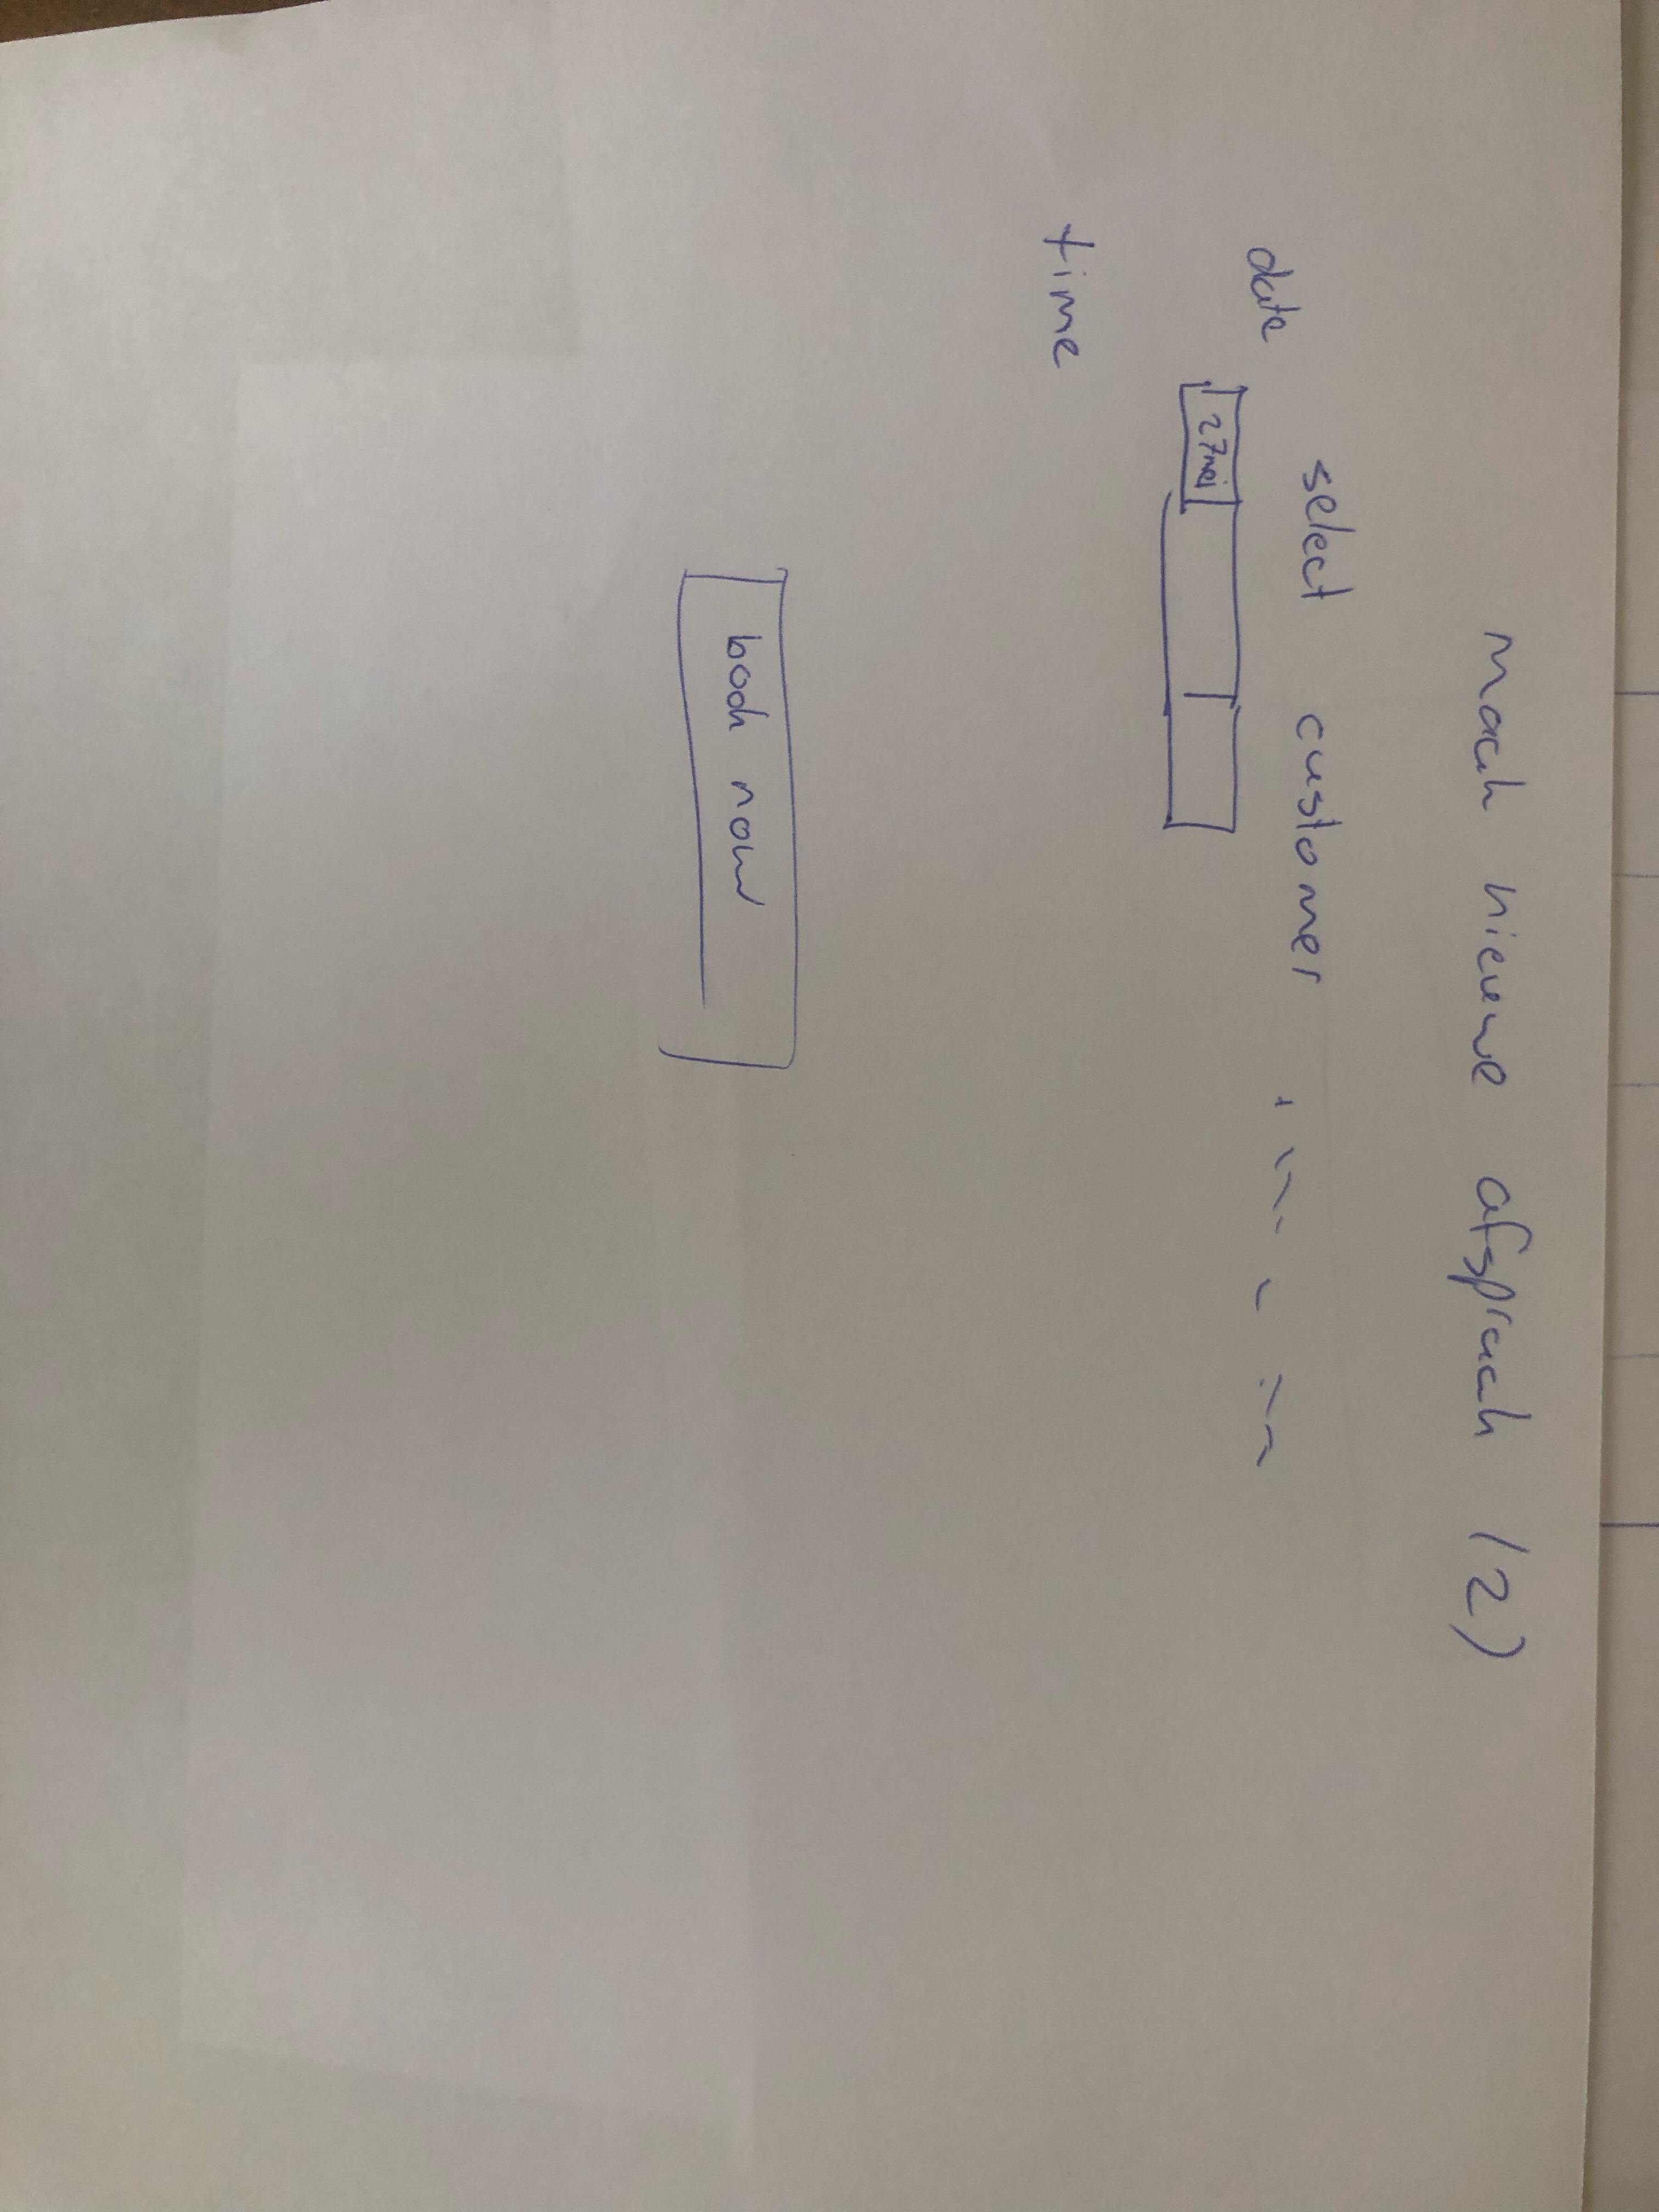 maak nieuwe afspraak (2)
select customer
date
27 mei
time
book now